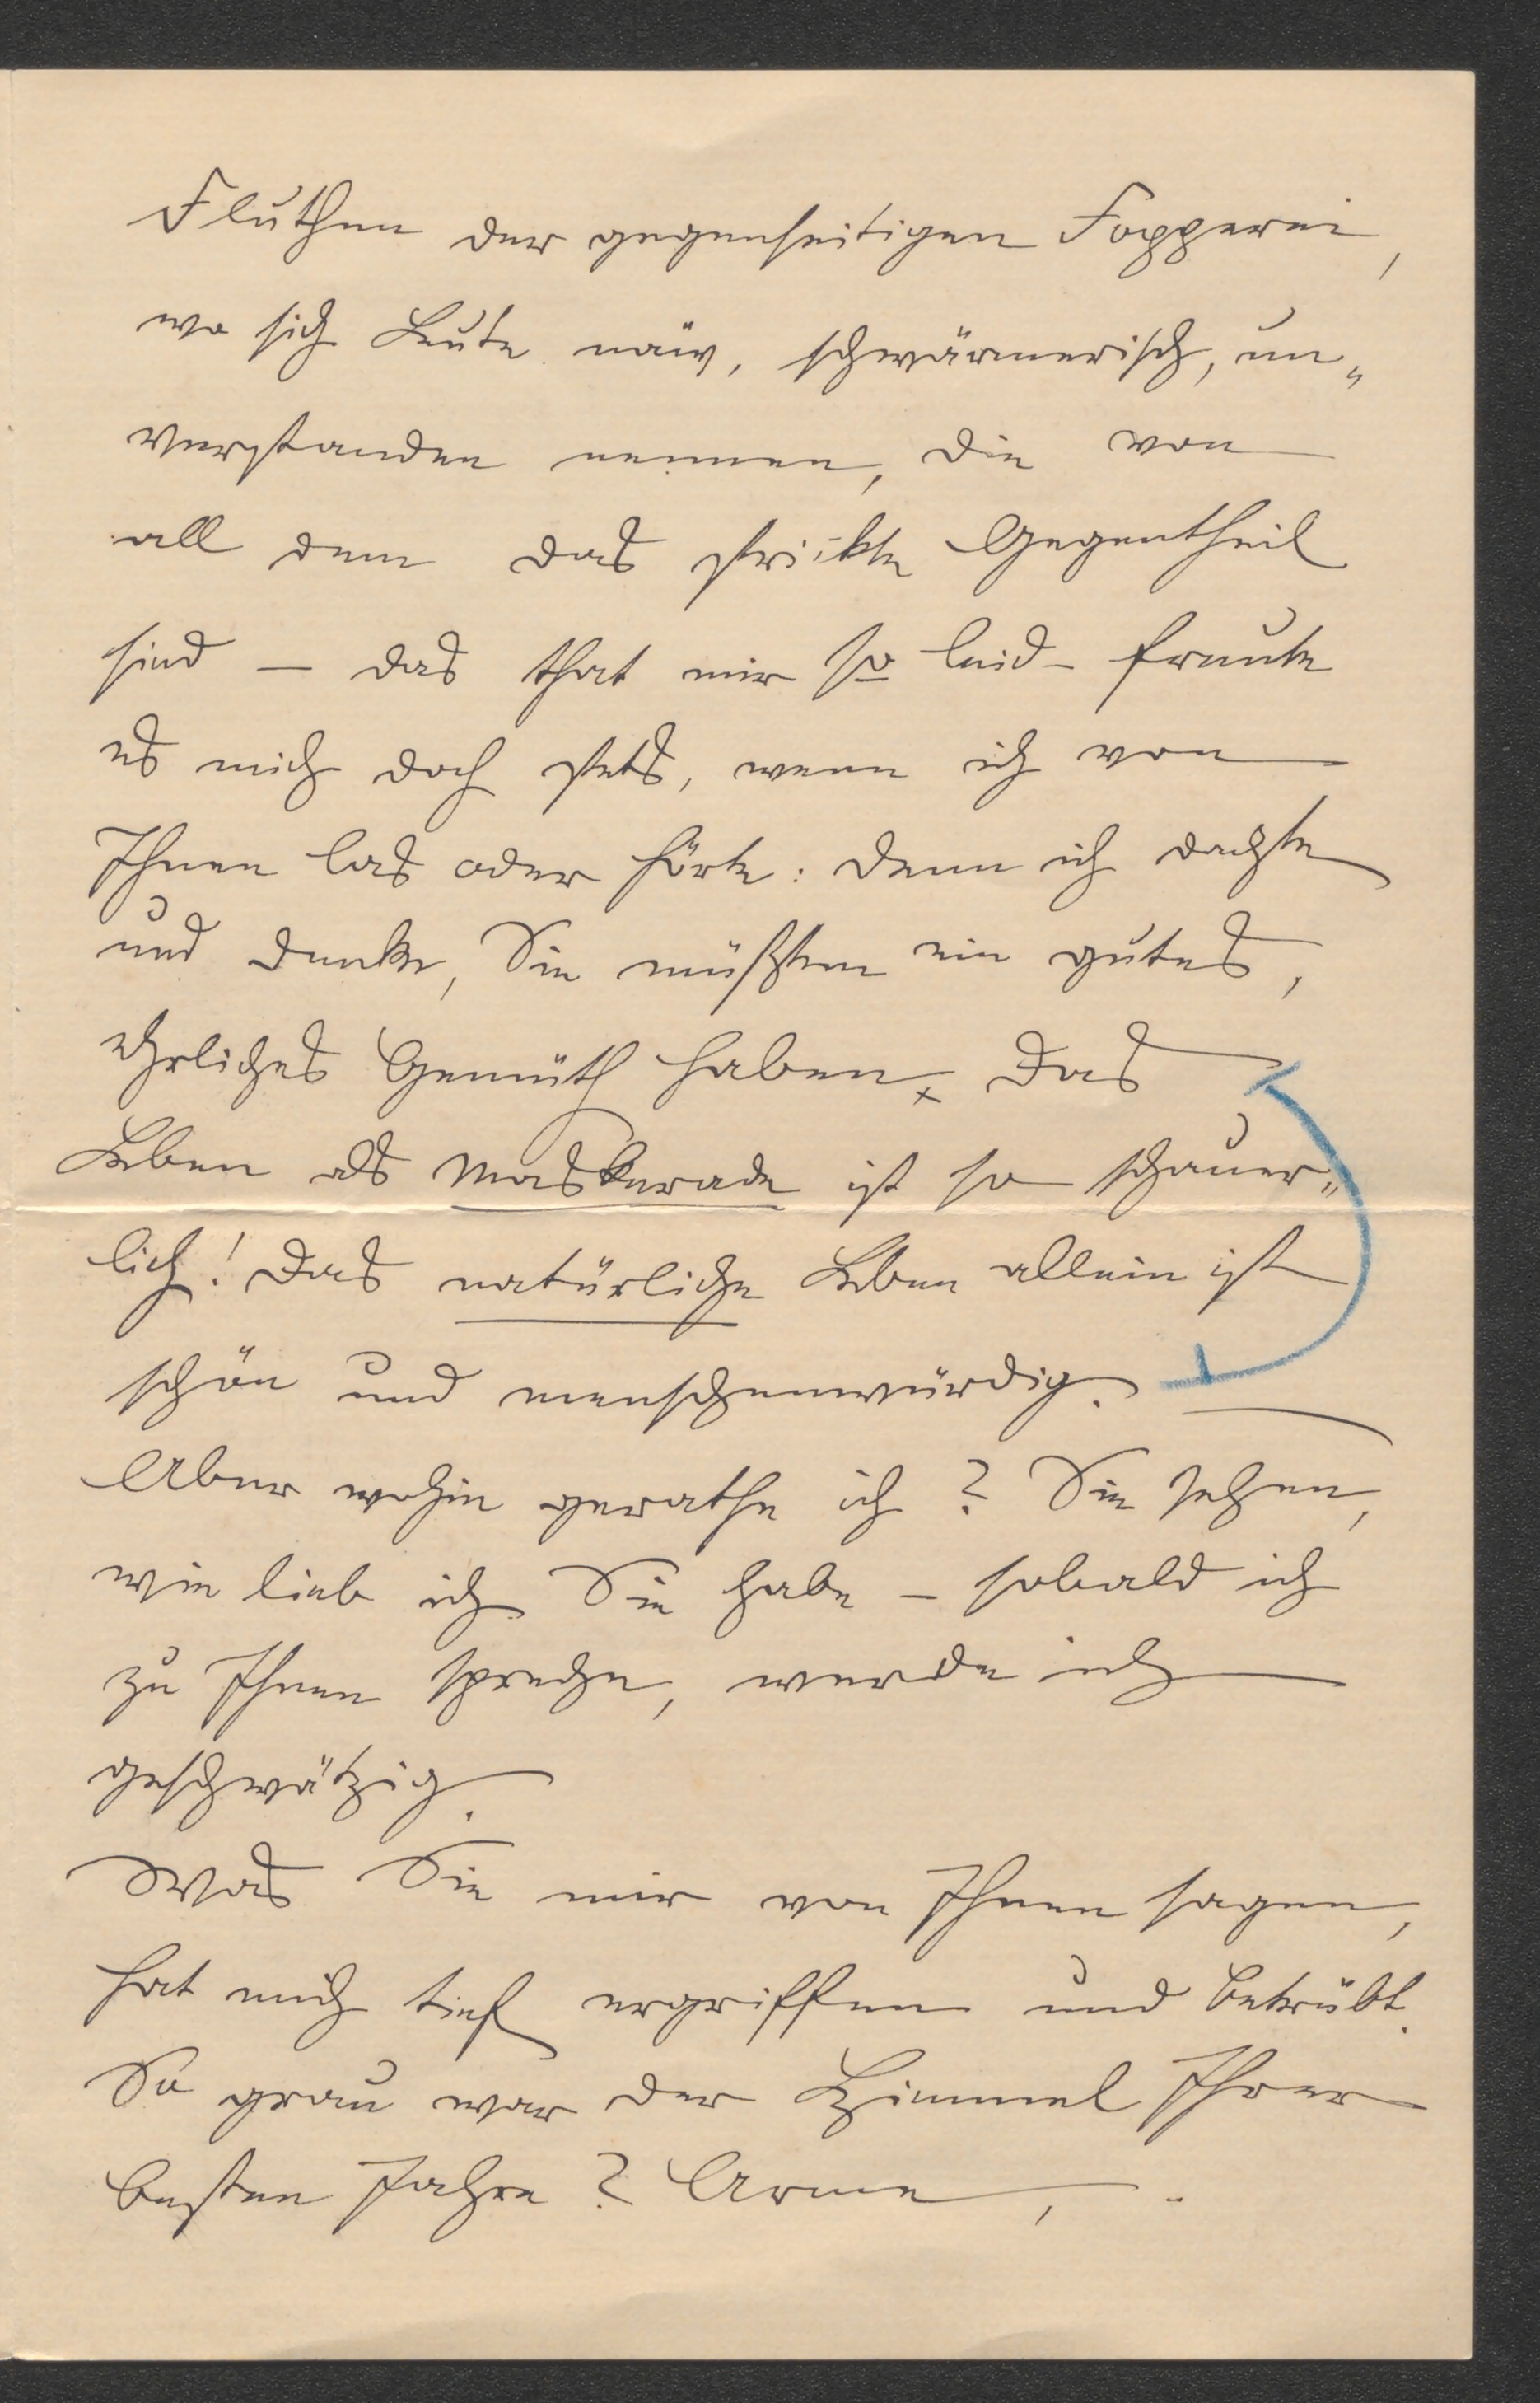 Fluthen der gegenseitigen Fopperei,
wo sich Leute naiv, schwärmerisch, un„
verstanden nennen, die von
all dem das strickte Gegentheil
sind – das that mir so leid – freute
es mich doch stets, wenn ich von
Ihnen las oder hörte: denn ich dachte
und denke, Sie müßten ein gutes,
ehrliches Gemüth haben. Das
Leben als Maskerade ist so schauer„
lich! Das natürliche Leben allein ist
schön und menschenwürdig.
Aber wohin gerathe ich? Sie sehen,
wie lieb ich Sie habe – sobald ich
zu Ihnen spreche, werde ich
geschwätzig.
Was Sie mir von Ihnen sagen,
hat mich tief ergriffen und betrübt.
So grau war der Himmel Ihrer
besten Jahre? Arme, –